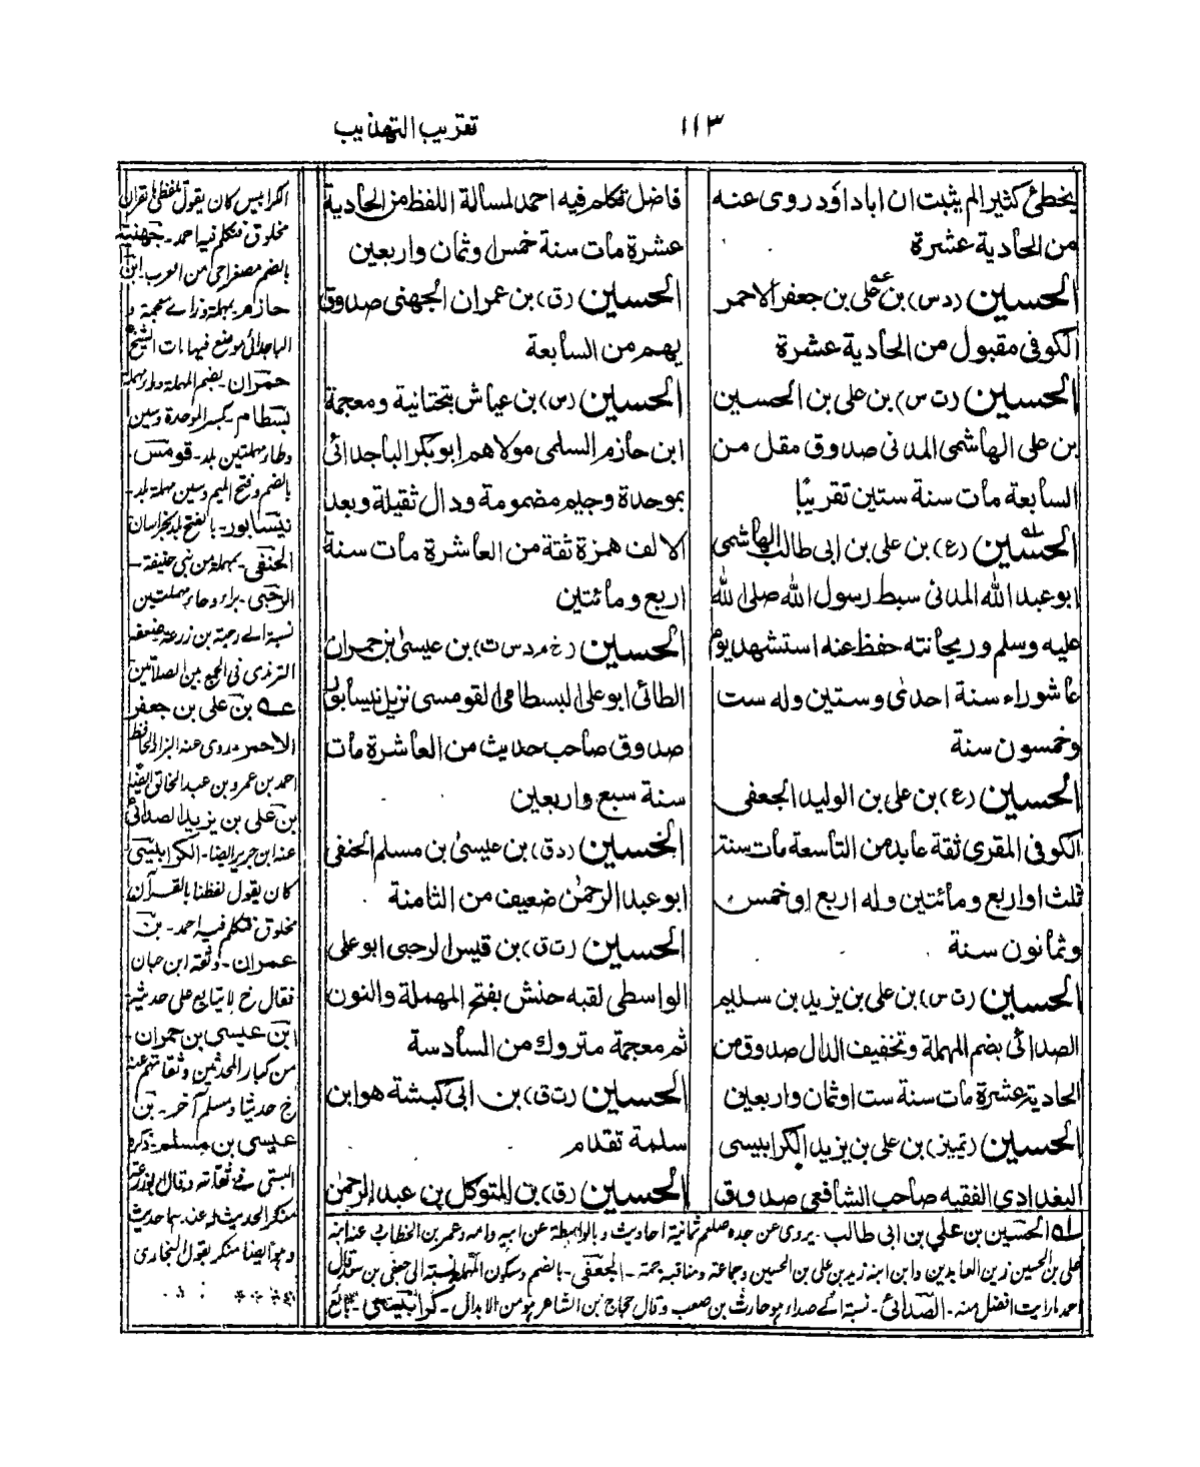 ١١٣
تقريب التهذيب
يخطئ كثيرا لم يثبت ان ابا داؤد روى عنه
من الحادية عشرة
الحسين (د س) بن على بن جعفر الاحمر
الكوفى مقبول من الحادية عشرة
الحسين (ت س) بن على بن الحسين
بن على الهاشمى المدنى صدوق مقل من
السابعة مات سنة ستين تقريبًا
الحسين (ع) بن على بن ابى طالب الهاشمى
ابو عبد الله المدنى سبط رسول الله صلى الله
عليه وسلم وريحانته حفظ عنه استشهد يوم
عاشوراء سنة احدى وستين وله ست
وخمسون سنة
الحسين (ع) بن على بن الوليد الجعفى
الكوفى المقرى ثقة عابد من التاسعة مات سنة
ثلث او اربع ومائتين وله اربع او خمس
وثمانون سنة
الحسين (ت س) بن على بن يزيد بن سليم
الصدائى بضم المهملة وتخفيف الدال صدوق من
الحادية عشرة مات سنة ست او ثمان واربعين
الحسين (تمييز) بن على بن يزيد الكرابيسى
البغدادى الفقيه صاحب الشافعى صدوق
فاضل تكلم فيه احمد لمسألة اللفظ من الحادية
عشرة مات سنة خمس او ثمان واربعين
الحسين (ق) بن عمران الجهنى صدوق
يهم من السابعة
الحسين (س) بن عياش بتحتانية ومعجمة
ابن حازم السلمى مولاهم ابو بكر الباجدائى
بموحدة وجيم مضمومة ودال ثقيلة وبعد
الالف همزة ثقة من العاشرة مات سنة
اربع ومائتين
الحسين (خ م د س ت) بن عيسىٰ بن حمران
الطائى ابو على البسطامى القومسى نزيل نيسابور
صدوق صاحب حديث من العاشرة مات
سنة سبع واربعين
الحسين (د ق) بن عيسىٰ بن مسلم الحنفى
ابو عبد الرحمٰن ضعيف من الثامنة
الحسين (ت ق) بن قيس الرحبى ابو على
الواسطى لقبه حنش بفتح المهملة والنون
ثم معجمة متروك من السادسة
الحسين (ت ق) بن ابى كبشة هو ابن
سلمة تقدم
الحسين (ق) بن المتوكل بن عبد الرحمٰن
الكرابيس كان يقول لفظى بالقران
مخلوق فتكلم فيه احمد۔ جهنية
بالضم مصغرا حى من العرب۔ ابن
حازم۔ بمهملة وزاے معجمة و
الباجدائى موضع
حمران۔ بضم المهملة وراء مهملة
بسطام۔ بكسر الموحدة وسين
وطاء مهملتين بلد۔ قومس۔
بالضم وفتح الميم وسين مهملة بلد۔
نيسابور۔ بالفتح بلد بخراسان
الحنفى۔ بمهملة من بنى حنيفة۔
الرحبى۔ براء وحاء مهملتين
نسبة الے رحبة بن زرعة ضعفه
الترمذى فى الجمع بين الصلاتين
عه بن على بن جعفر
الاحمر۔ روى عنه البزار الحافظ
احمد بن عمرو بن عبد الخالق ايضا
بن على بن يزيد الصدائى
عنه ابن جرير ايضا۔ الكرابيسى
كان يقول لفظنا بالقرآن
مخلوق فتكلم فيه احمد۔ بن
عمران۔ وثقه ابن حبان
فقال خ لا يتابع على حديثه
ابن عيسى بن حمران۔
من كبار المحدثين وثقاتهم عنه
خ حديثا ومسلم آخر۔ بن
عيسى بن مسلم۔ ذكره
البستى فى ثقاته وقال ابو زرعة
منكر الحديث له عند۔ ہما حديث
وہو ايضا منكر بقول البخارى
له الحسين بن على بن ابى طالب۔ يروى عن جده صلعم ثمانية احاديث وبالواسطة عن ابيه وامه وعمر بن الخطاب عنه ابنه
على بن الحسين زين العابدين وابن ابنه زيد بن على بن الحسين وجماعة ومناقبه جمة۔ الجعفى۔ بالضم وسكون المهملة نسبة الى جعفى بن سعد قال
احمد ما رايت افضل منه۔ الصدائى۔ نسبة الے صداء ہو حارث بن صعب وقال حجاج بن الشاعر ہو من الابدال۔ كرابيسى بائع